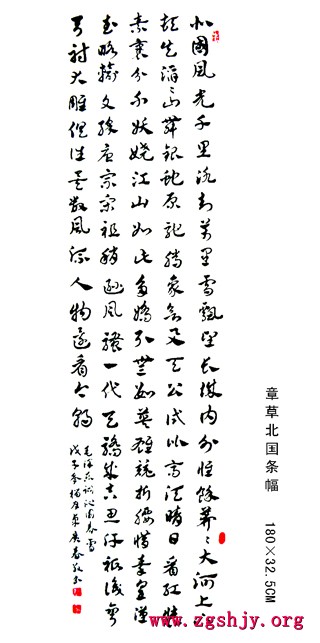 北國风光千里冰封萬里雪飄望长城内外惟馀莽〻大河上下
顿失滔〻山舞银蛇原驰腊象欲与天公试比高须晴日看红装
素裹分外妖娆江山如此多娇引無数英雄竞折腰惜秦皇漢
武略输文采唐宗宋祖稍逊风骚一代天骄成吉思汗只识弯
弓射大雕俱往矣数风流人物还看今朝
毛泽东词沁园春雪
戊子冬
章草北国条幅 180×32.5CM
www.zgshjy.org